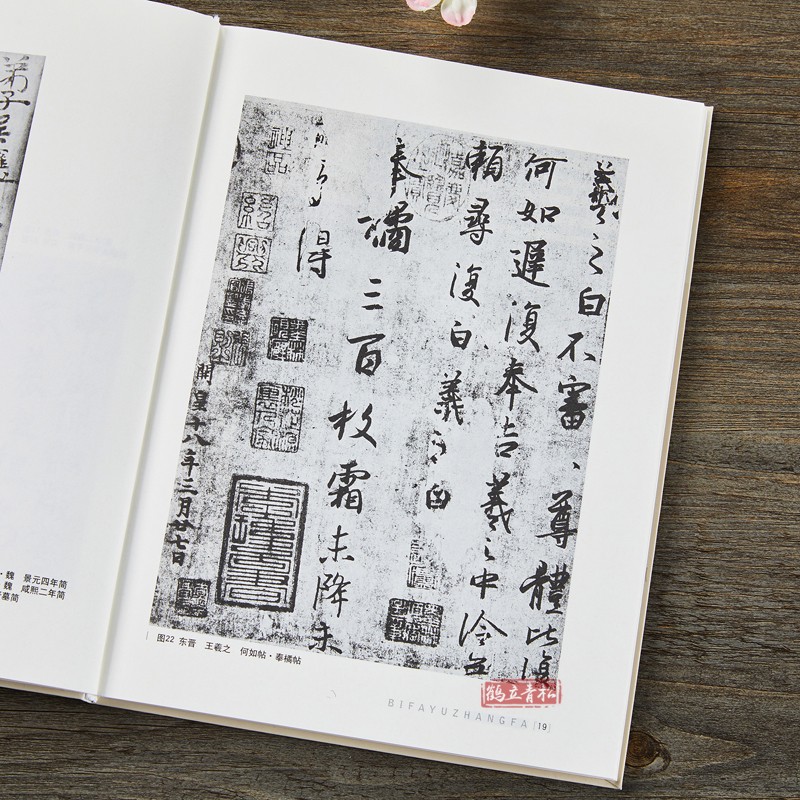 弟子
·魏 景元四年简
魏 咸熙二年简
墓简
羲之白不審、尊體比復
何如遲復奉告羲之中冷無
賴尋復白羲之白
奉橘三百枚霜未降未
可多得
開皇十八年三月廿七日
神品
紹興
图22 东晋 王羲之 何如帖·奉橘帖
BIFAYUZHANGFA [19]
鹤立青松